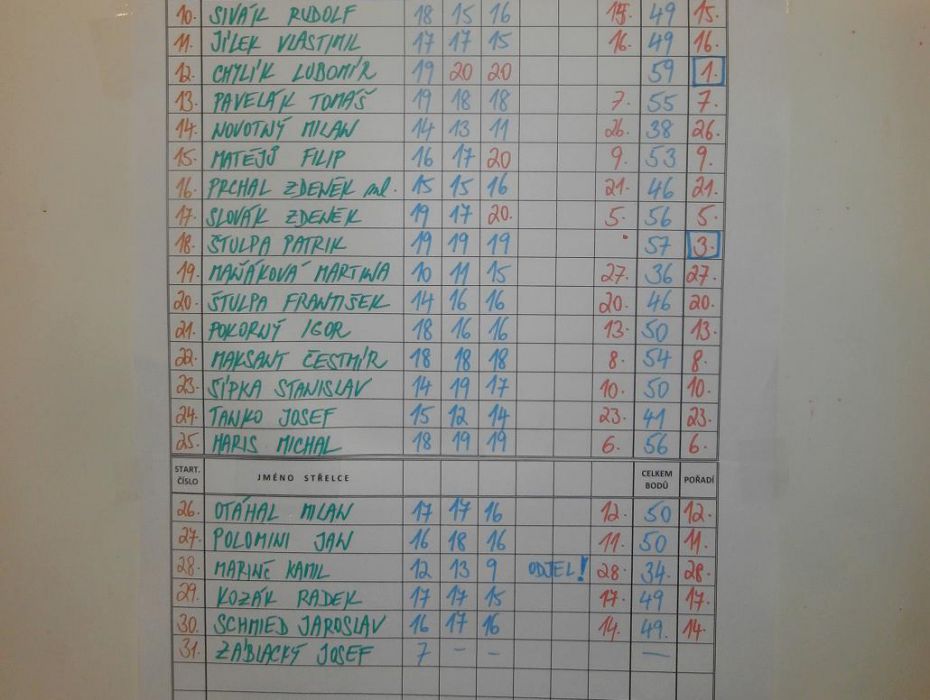 10. SIVÁK RUDOLF 18 15 16 15. 49 15.
11. JÍLEK VLASTIMIL 17 17 15 16. 49 16.
12. CHYLÍK LUBOMÍR 19 20 20 59 1.
13. PAVELÁK TOMÁŠ 19 18 18 7. 55 7.
14. NOVOTNÝ MILAN 14 13 11 26. 38 26.
15. MATĚJŮ FILIP 16 17 20 9. 53 9.
16. PRCHAL ZDENĚK ml. 15 15 16 21. 46 21.
17. SLOVÁK ZDENĚK 19 17 20. 5. 56 5.
18. ŠTULPA PATRIK 19 19 19 57 3.
19. MAŇÁKOVÁ MARTINA 10 11 15 27. 36 27.
20. ŠTULPA FRANTIŠEK 14 16 16 20. 46 20.
21. POKORNÝ IGOR 18 16 16 13. 50 13.
22. MAKSANT ČESTMÍR 18 18 18 8. 54 8.
23. ŠÍPKA STANISLAV 14 19 17 10. 50 10.
24. TANKO JOSEF 15 12 14 23. 41 23.
25. MARIS MICHAL 18 19 19 6. 56 6.
START. ČÍSLO JMÉNO STŘELCE CELKEM BODŮ POŘADÍ
26. OTÁHAL MILAN 17 17 16 12. 50 12.
27. POLOMINI JAN 16 18 16 11. 50 11.
28. MARINČ KAMIL 12 13 9 ODJEL! 28. 34. 28.
29. KOZÁK RADEK 17 17 15 17. 49 17.
30. SCHMIED JAROSLAV 16 17 16 14. 49. 14.
31. ZÁBLACKÝ JOSEF 7 – – —